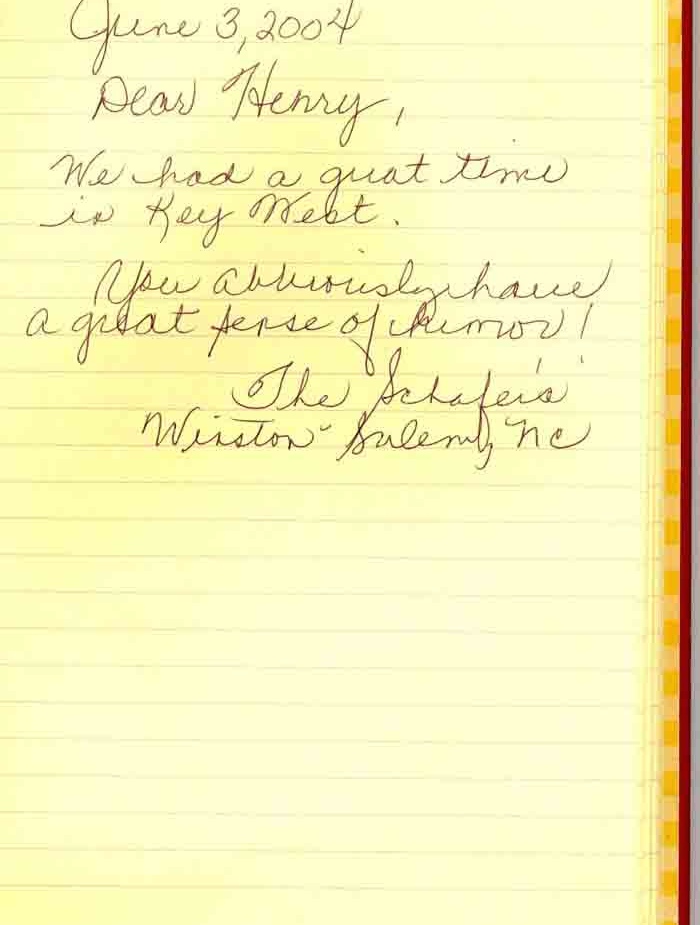 June 3, 2004
Dear Henry,
We had a great time
in Key West.
You obviously have
a great sense of humor!
The Schafer's
Winston-Salem, NC